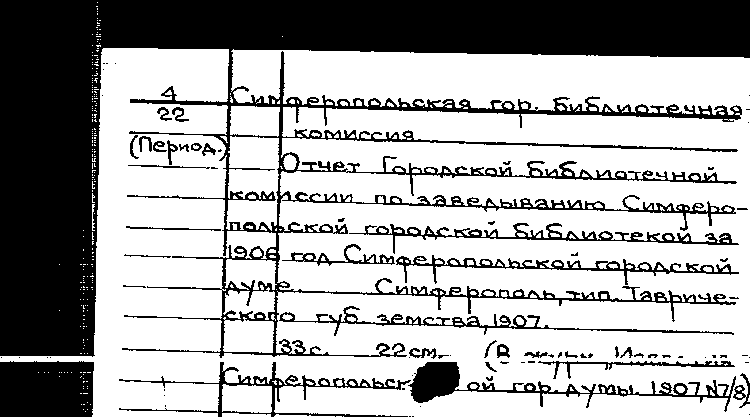 4
22
(Период.)
Симферопольская гор. библиотечная
комиссия.
Отчет Городской библиотечной
комиссии по заведыванию Симферо-
польской городской библиотекой за
1906 год Симферопольской городской
думе. Симферополь, тип. Тавриче-
ского губ. земства, 1907.
33 с. 22 см. (В журн.
ой гор. думы. 1907, №7/8)